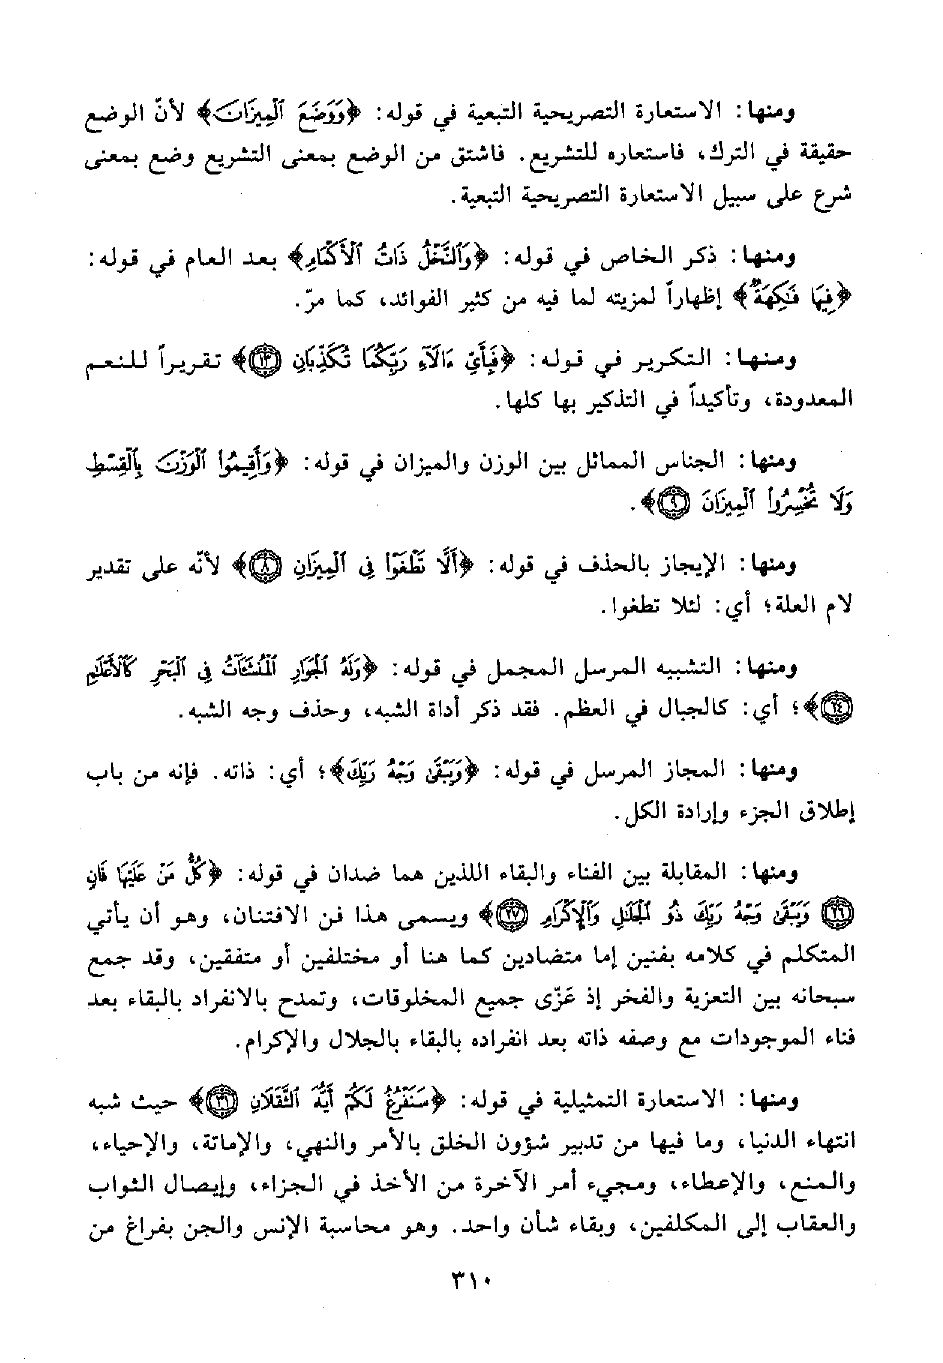 ومنها: الاستعارة التصريحية التبعية في قوله: ﴿وَوَضَعَ ٱلْمِيزَانَ﴾ لأنّ الوضع
حقيقة في الترك، فاستعاره للتشريع. فاشتق من الوضع بمعنى التشريع وضع بمعنى
شرع على سبيل الاستعارة التصريحية التبعية.
ومنها: ذكر الخاص في قوله: ﴿وَٱلنَّخْلُ ذَاتُ ٱلْأَكْمَامِ﴾ بعد العام في قوله:
﴿فِيهَا فَٰكِهَةٌ﴾ إظهاراً لمزيته لما فيه من كثير الفوائد، كما مرّ.
ومنها: التكرير في قوله: ﴿فَبِأَيِّ ءَالَآءِ رَبِّكُمَا تُكَذِّبَانِ ١٣﴾ تقريراً للنعم
المعدودة، وتأكيداً في التذكير بها كلها.
ومنها: الجناس المماثل بين الوزن والميزان في قوله: ﴿وَأَقِيمُوا۟ ٱلْوَزْنَ بِٱلْقِسْطِ
وَلَا تُخْسِرُوا۟ ٱلْمِيزَانَ ٩﴾.
ومنها: الإيجاز بالحذف في قوله: ﴿أَلَّا تَطْغَوْا۟ فِى ٱلْمِيزَانِ ٨﴾ لأنّه على تقدير
لام العلة؛ أي: لئلا تطغوا.
ومنها: التشبيه المرسل المجمل في قوله: ﴿وَلَهُ ٱلْجَوَارِ ٱلْمُنشَـَٔاتُ فِى ٱلْبَحْرِ كَٱلْأَعْلَٰمِ
٢٤﴾؛ أي: كالجبال في العظم. فقد ذكر أداة الشبه، وحذف وجه الشبه.
ومنها: المجاز المرسل في قوله: ﴿وَيَبْقَىٰ وَجْهُ رَبِّكَ﴾؛ أي: ذاته. فإنه من باب
إطلاق الجزء وإرادة الكل.
ومنها: المقابلة بين الفناء والبقاء اللذين هما ضدان في قوله: ﴿كُلُّ مَنْ عَلَيْهَا فَانٍ
٢٦ وَيَبْقَىٰ وَجْهُ رَبِّكَ ذُو ٱلْجَلَٰلِ وَٱلْإِكْرَامِ ٢٧﴾ ويسمى هذا فن الافتنان، وهو أن يأتي
المتكلم في كلامه بفنين إما متضادين كما هنا أو مختلفين أو متفقين، وقد جمع
سبحانه بين التعزية والفخر إذ عَزّى جميع المخلوقات، وتمدح بالانفراد بالبقاء بعد
فناء الموجودات مع وصفه ذاته بعد انفراده بالبقاء بالجلال والإكرام.
ومنها: الاستعارة التمثيلية في قوله: ﴿سَنَفْرُغُ لَكُمْ أَيُّهَ ٱلثَّقَلَانِ ٣١﴾ حيث شبه
انتهاء الدنيا، وما فيها من تدبير شؤون الخلق بالأمر والنهي، والإماتة، والإحياء،
والمنع، والإعطاء، ومجيء أمر الآخرة من الأخذ في الجزاء، وإيصال الثواب
والعقاب إلى المكلفين، وبقاء شأن واحد. وهو محاسبة الإنس والجن بفراغ من
٣١٠